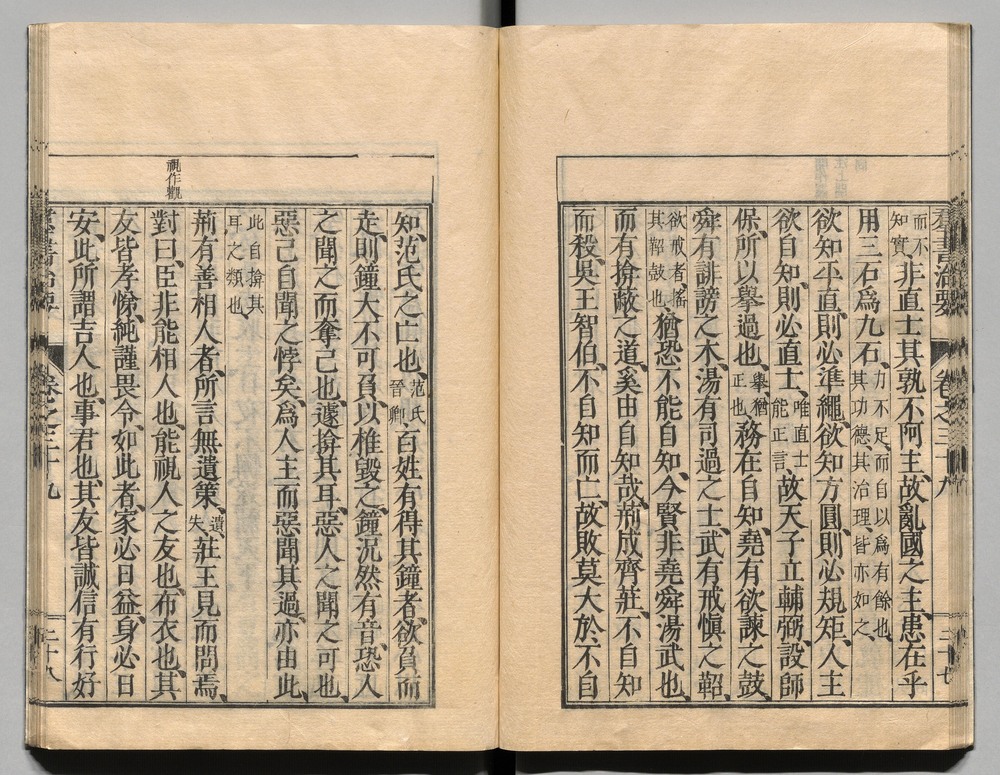 群書治要 卷之三十九 三十七
而不知實、非直士其孰不阿主、故亂國之主、患在乎
用三石爲九石、力不足、而自以爲有餘也、其功德、其治理、皆亦如之、
欲知平直、則必準繩、欲知方圓、則必規矩、人主
欲自知、則必直士、唯直士能正言、故天子立輔弼、設師
保、所以擧過也、擧、猶正也、務在自知、堯有欲諫之鼓、
舜有誹謗之木、湯有司過之士、武有戒愼之鞀、
欲戒者、搖其鞀鼓也、猶恐不能自知、今賢非堯舜湯武也、
而有揜蔽之道、奚由自知哉、荊成齊莊、不自知
而殺、吳王智伯、不自知而亡、故敗莫大於不自
知、范氏之亡也、范氏晉卿、百姓有得其鐘者、欲負而
走、則鐘大不可負、以椎毀之、鐘況然有音、恐人
之聞之而奪己也、遽揜其耳、惡人之聞之可也、
惡己自聞之悖矣、爲人主而惡聞其過、亦由此、
此自揜其耳之類也、
荊有善相人者、所言無遺策、遺、失、莊王見而問焉、
對曰、臣非能相人也、能視人之友也、布衣也、其
視作觀
友皆孝悌、純謹畏令、如此者、家必日益、身必日
安、此所謂吉人也、事君也、其友皆誠信有行好
群書治要 卷之三十九 三十八